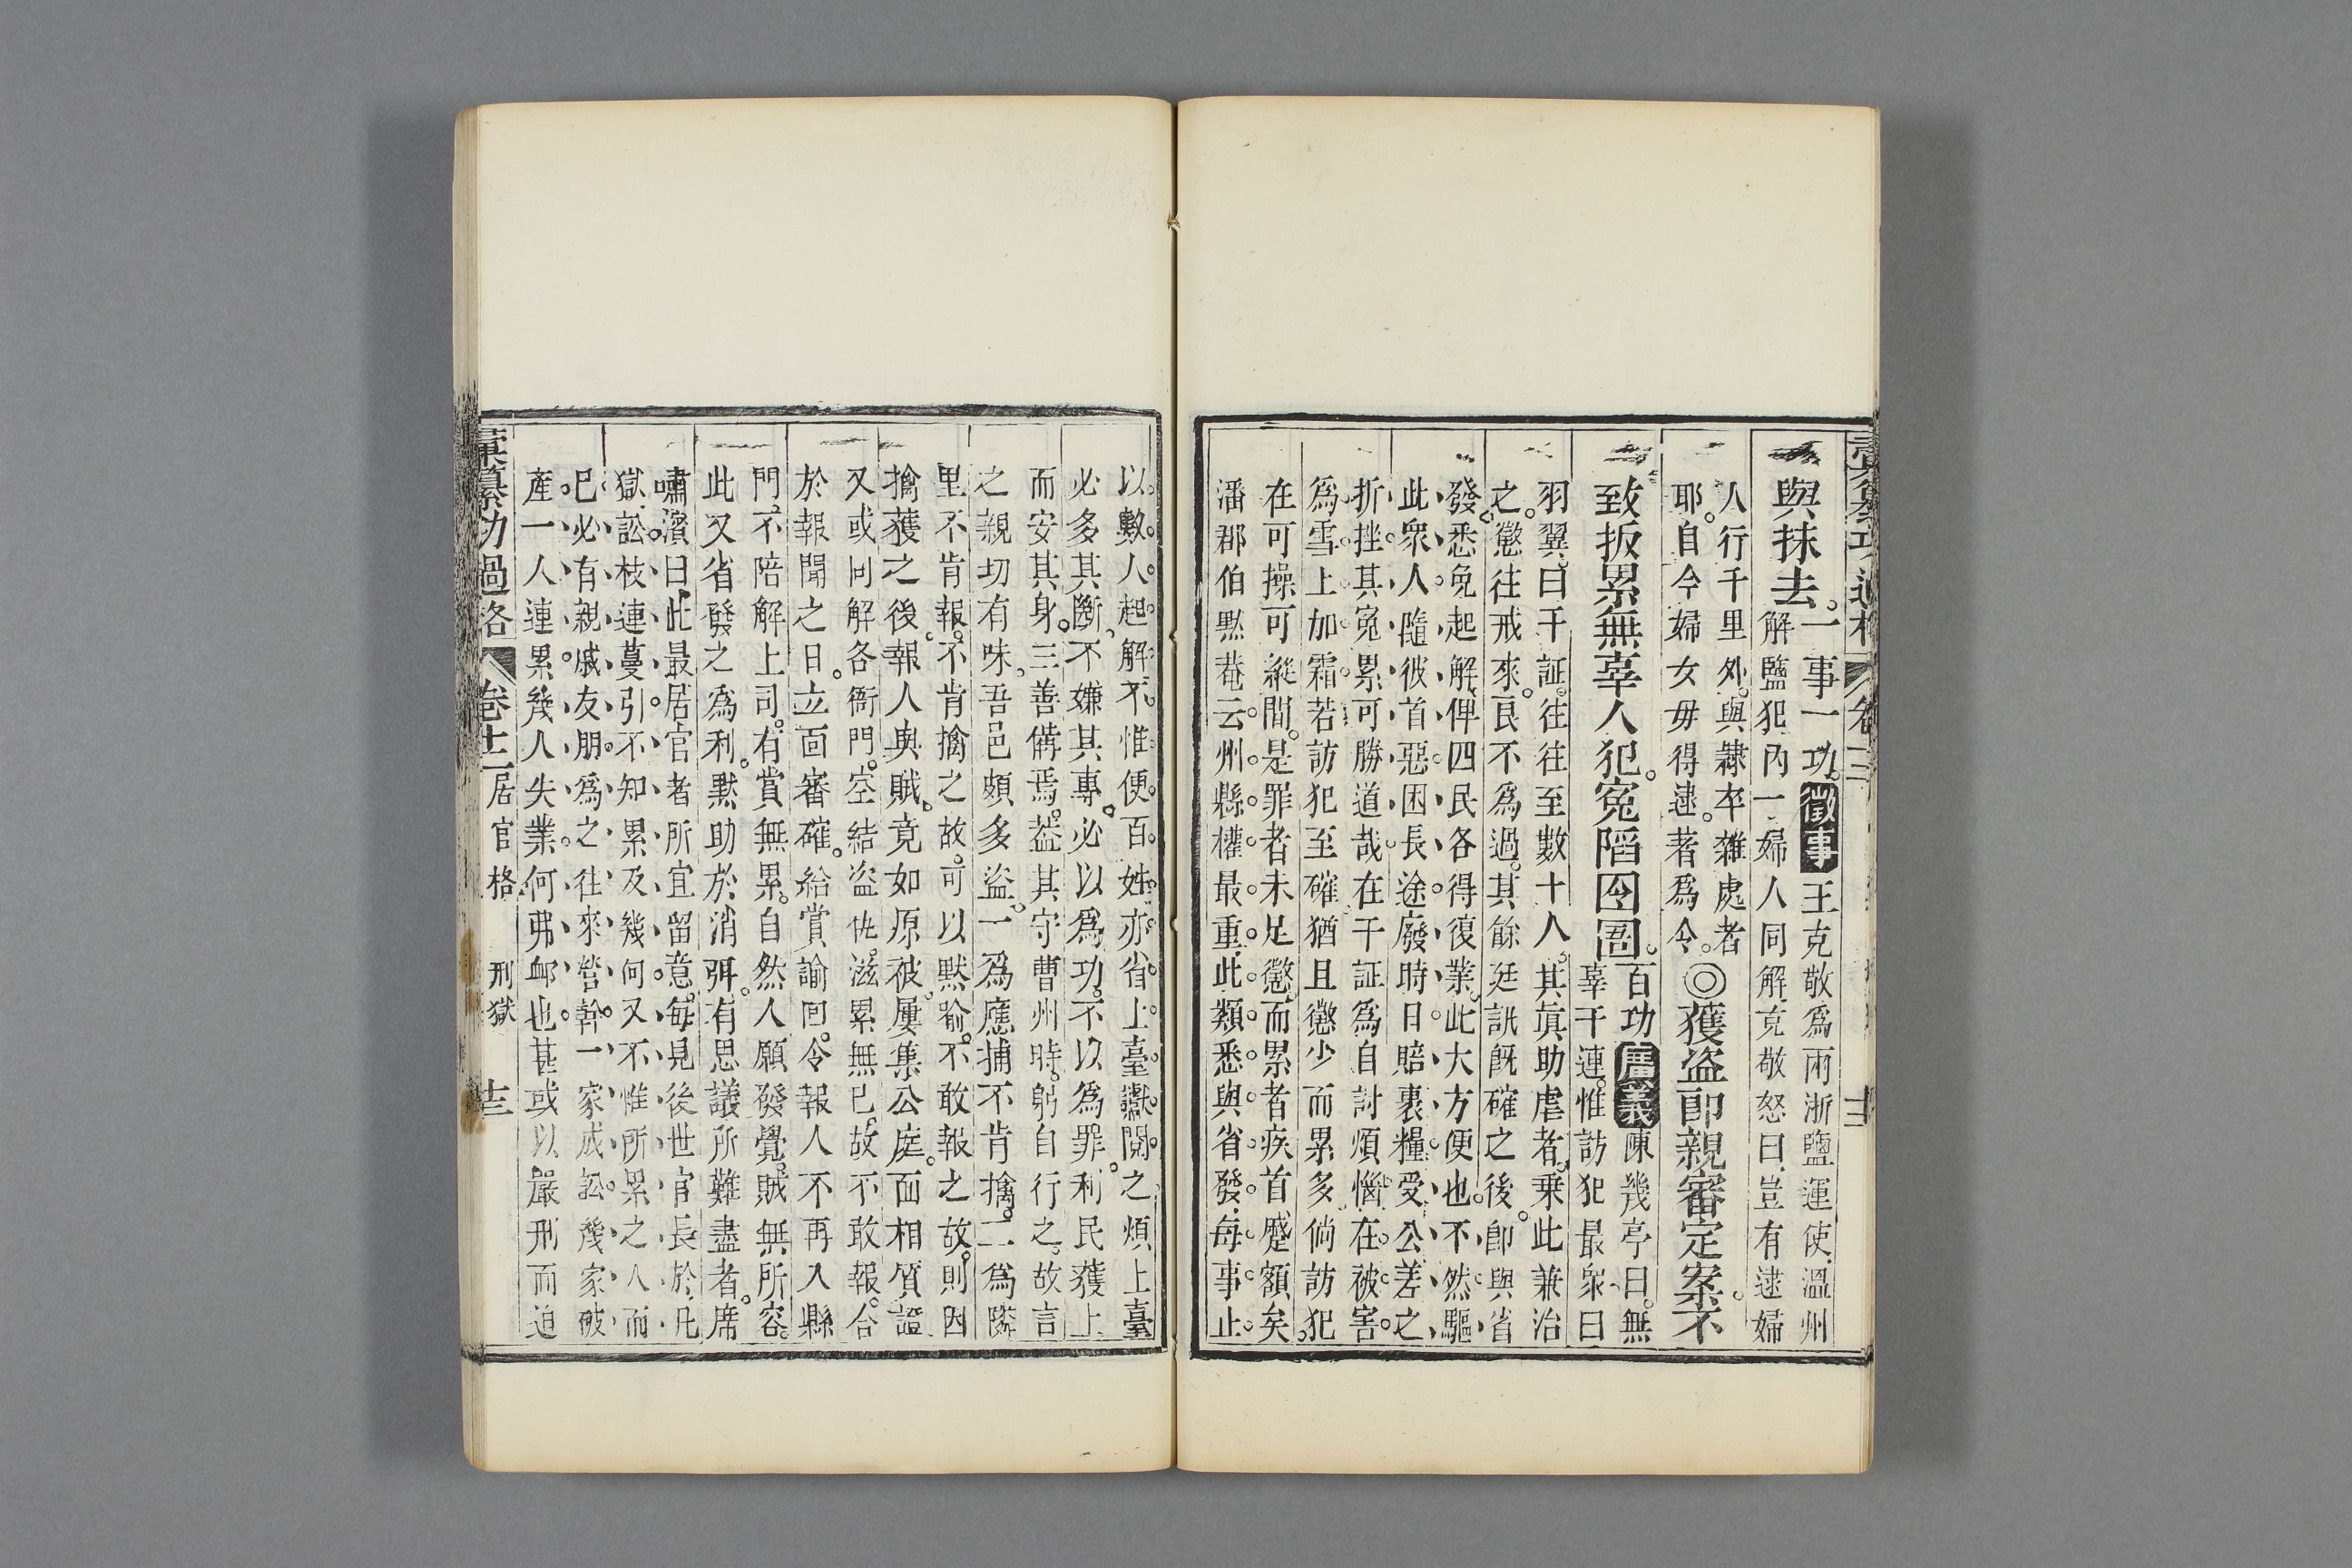 與抹去。
一事一功。徵事王克敬爲兩浙鹽運使溫州
解鹽犯內一婦人同解克敬怒曰豈有逮婦
人行千里外與隸卒雜處者
耶。自今婦女毋得逮。著爲令。
◎獲盜卽親審定案。不
致扳累無辜人犯。寃陷囹圄。
百功廣義陳幾亭曰。無
辜干連。惟訪犯最衆曰
羽翼。曰干証。往往至數十人。其眞助虐者。乗此兼治
之。懲往戒來。良不爲過。其餘廷訊旣確之後。卽與省
發。悉免起解俾四民各得復業。此大方便也。不然驅
此衆人隨彼首惡。困長途。廢時日。賠裹糧。受公差之
折挫。其寃累可勝道哉。在干証爲自討煩惱。在被害。
爲雪上加霜。若訪犯至確。猶且懲少而累多。倘訪犯
在可操可縱間。是罪者未足懲。而累者疾首蹙額矣。
潘郡伯默菴云。州縣權最重。此類悉與省發。每事止
以數人起解。不惟便百姓。亦省上臺讞閱。之煩上臺
必多其斷。不嫌其專。必以爲功。不以爲罪。利民獲上
而安其身。三善備焉。葢其守曹州時。躬自行之。故言
之親切有味。吾邑頗多盜。一爲應捕不肯擒。二爲隣
里不肯報。不肯擒之故。可以默喻。不敢報之故。則因
擒獲之後。報人與賊。竟如原被。屢集公庭。面相質證
又或同解各衙門。窒結盜仇。滋累無已。故不敢報。合
於報聞之日。立面審確。給賞諭回。令報人不再入縣
門。不陪解上司。有賞無累。自然人願發覺。賊無所容。
此又省發之爲利。默助於消弭。有思議所難盡者。席
嘯濱曰。此最居官者所宜留意。每見後世官長。於凡
獄訟枝連蔓引。不知累及幾何。又不惟所累之人而
已。必有親戚友朋。爲之往來營幹。一家成訟。幾家破
產。一人連累。幾人失業。何弗邮也。甚或以嚴刑而迫
彙纂功過格 卷十二 居官格 刑獄 十三